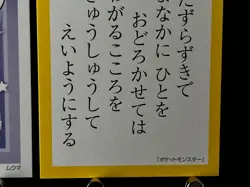 たずらずきで
よなかに ひとを
おどろかせては
わがるこころを
きゅうしゅうして
えいようにする
「ポケットモンスター」
ムウマ